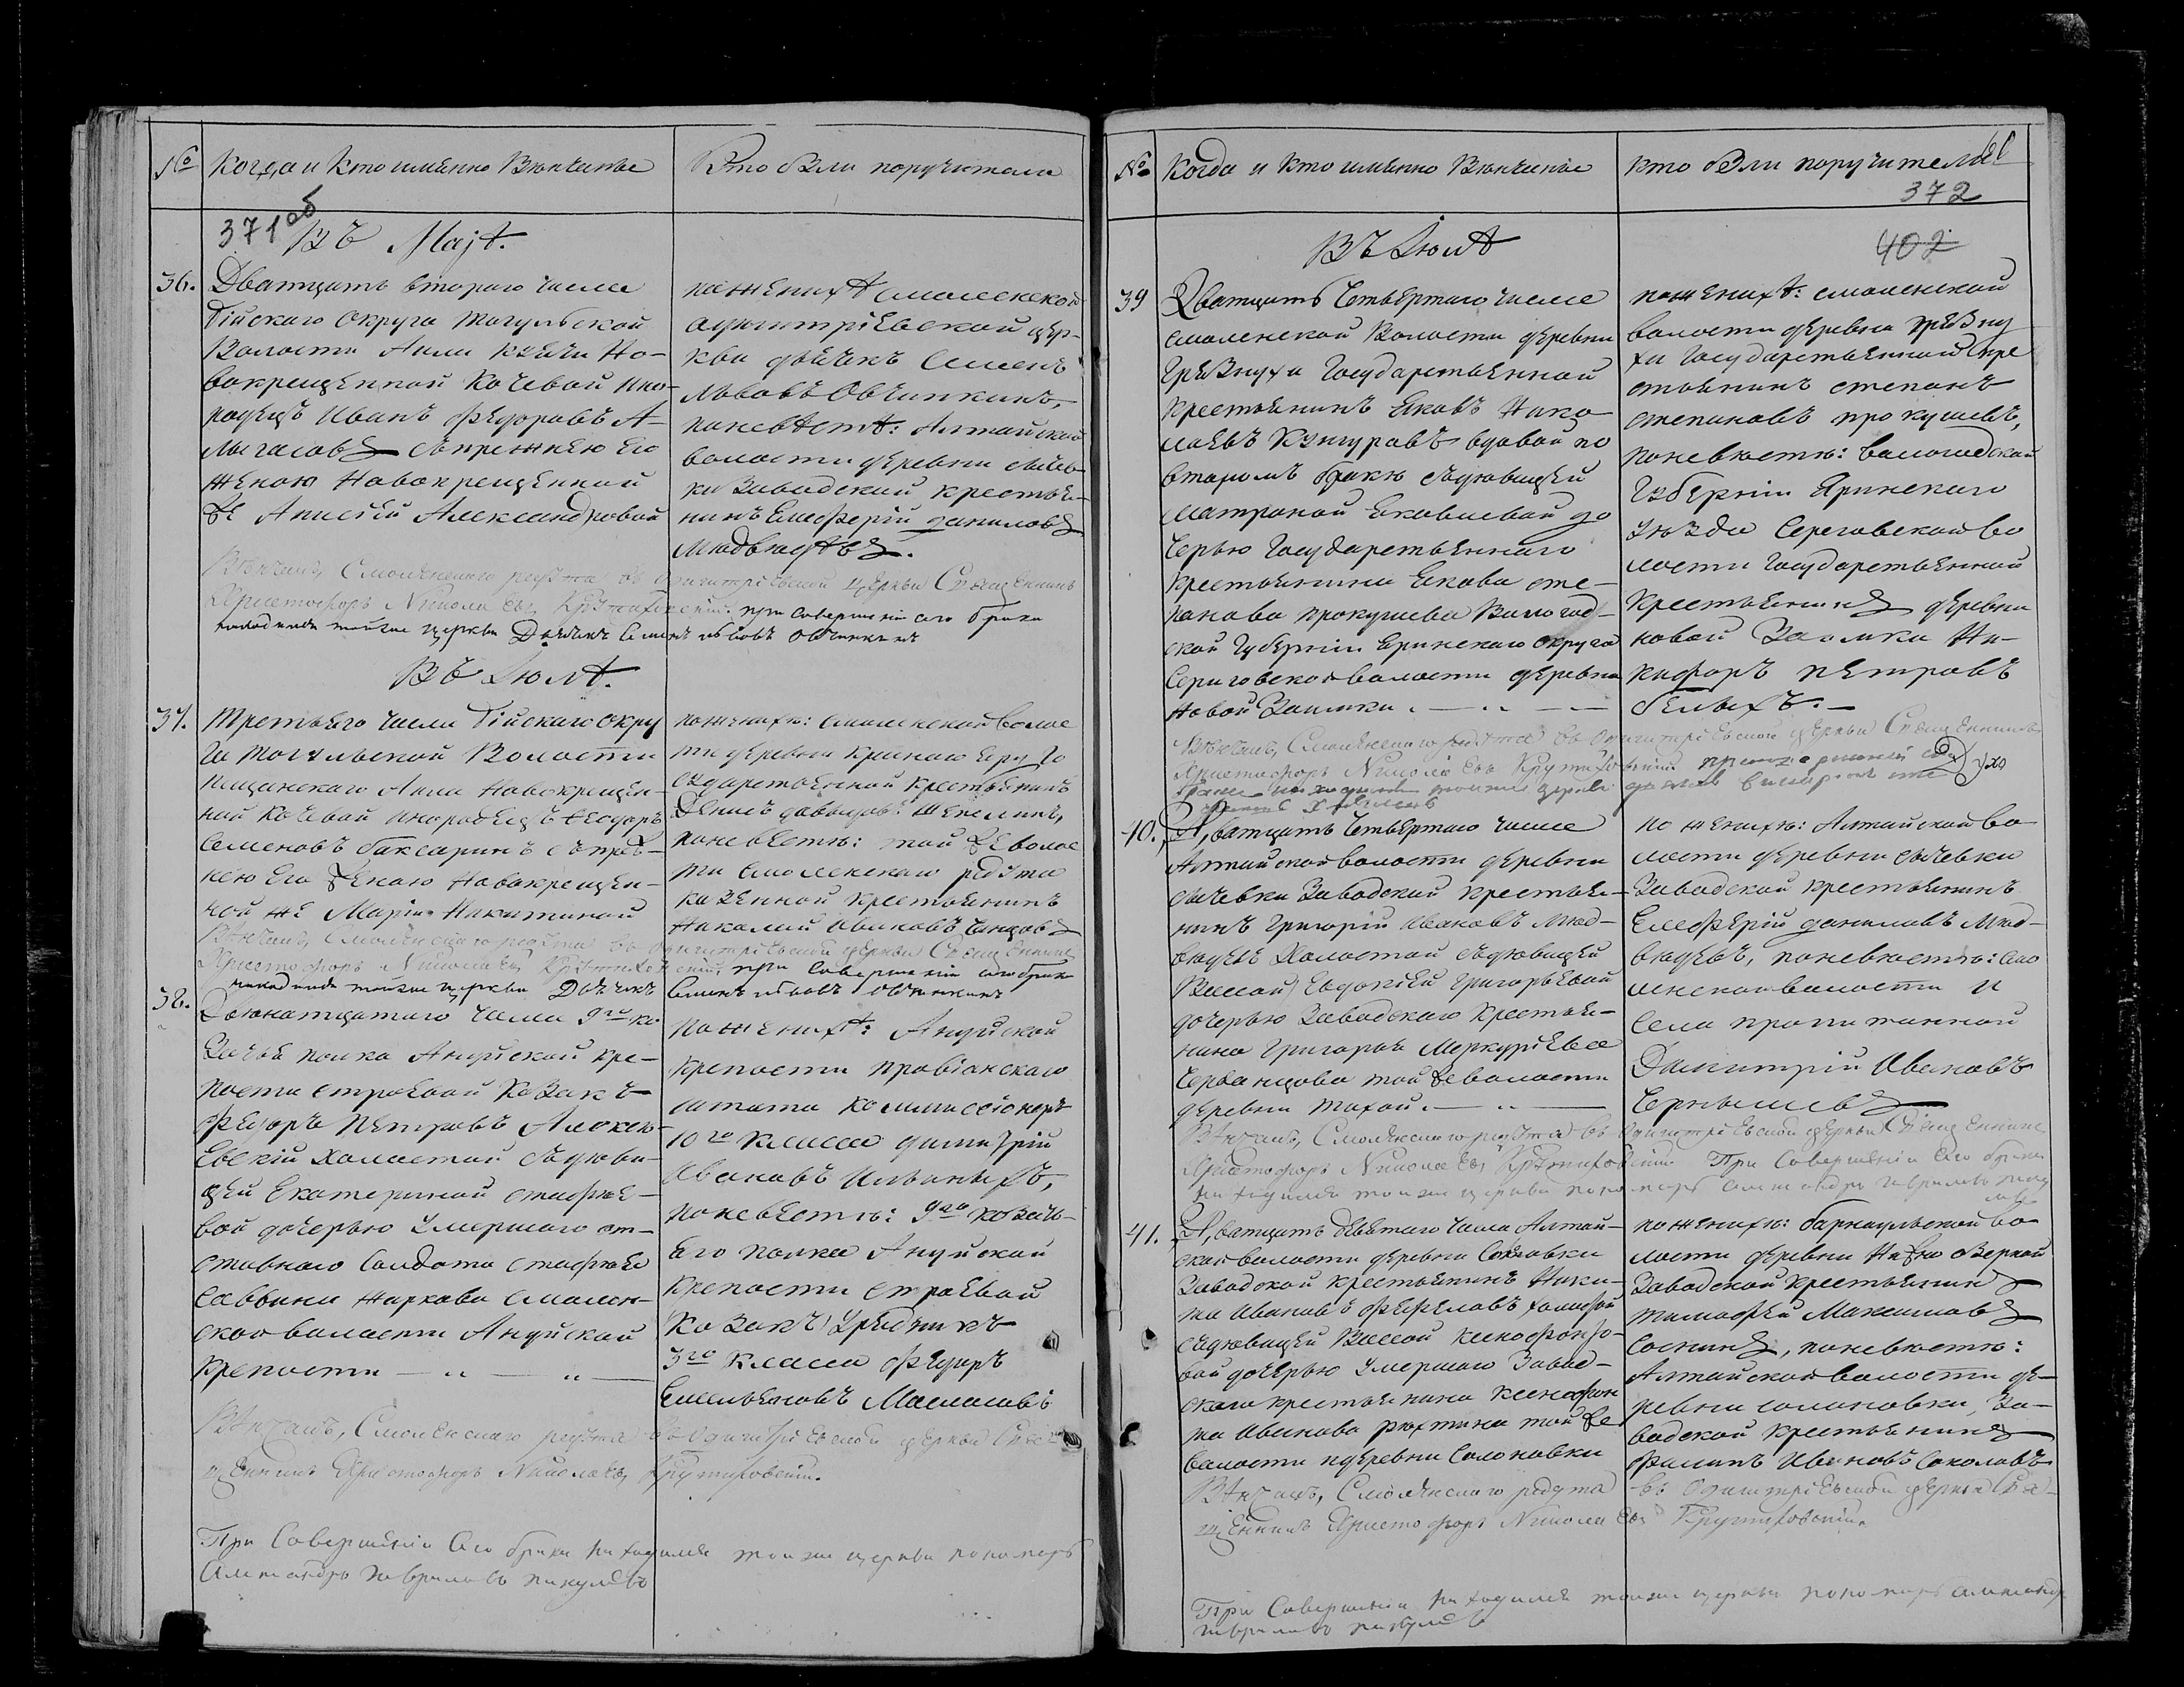 №
Когда и Кто именно Венчаны
Кто были поручители
371 об
Въ Маѣ.
36.
Дватцать втораго числа
бійскаго Округа тогульской
Волости Аила Но-
вокрещенной Кочевой ино-
родецъ Иванъ Федоровъ А-
съ прежнею Его
женою Новокрещенной
же Александровой
по женихѣ Смоленской
Одигитріевской цер-
кви дьячкъ Семенъ
Львовъ Овчинкинъ,
по невѣстѣ: Алтайской
волости деревни сыче-
вки Заводский крестья-
нинъ Елеферій даниловъ
Медведевъ.
Венчалъ, Смоленскаго редута въ Одигитріевской церкви Священникъ
Христофоръ Николаевъ Крутиховскій. при совершеніи сего брака
находился тойже церкви Дьячекъ Семенъ львовъ Овчинкинъ
Въ Іюлѣ.
37.
Третьяго числа бійскаго Окру
га тогульской Волости
Аила Новокрещен-
ной Кочевой инородецъ Феодоръ
Семеновъ баксаринъ съ преж-
нею Его женою Новокрещен-
ной же Маріей Никитиной
по женихе: смоленской волос
ти деревни краснаго Яру Го
сударственной Крестьянинъ
Денисъ давыдовъ
по невесте: той же волос
ти смоленскаго редута
казенной Крестьянинъ
Николай Ивановъ
Венчалъ, Смоленскаго редута въ Одигитріевской церкви Священникъ
Христофоръ Николаевъ Крутиховскій. при совершеніи сего брака
находился тойже церкви Дьячекъ Семенъ львовъ Овчинкинъ
38.
Двенатцатаго числа 9го ка-
зачья полка Ануйской кре-
пости строевой Козакъ
Федоръ Петровъ Алексе-
евскій холостой съ деви-
цей Екатериной стафее-
вой дочерью умершаго от-
ставнаго Солдата стафея
Саввина Жаркова смолен-
ской волости Ануйской
крепости — „ — „ —
по женихѣ: Ануйской
крепости провіанскаго
штата Коммисіонеръ
10го Класса димитрій
Ивановъ Ильиныхъ,
по невесте: 9го козачь-
его полка Ануйской
крепости строевой
Козакъ Урядникъ
3го Класса Федоръ
Емельяновъ Маслоковъ
Венчалъ, Смоленскаго редута въ Одигитріевской церкви Свя-
щенникъ Христофоръ Николаевъ Крутиховскій.
При Совершеніи Сего брака находился тойже церкви пономарь
Александръ гавриловъ пикулевъ
№
Когда и Кто именно Венчаны
Кто были поручители
372
402
Въ Іюлѣ
39
Дватцать Четвертаго числа
смоленской Волости деревни
Грезнухи Государственной
Крестьянинъ Яковъ Нико
лаевъ Кунгуровъ вдовой по
второмъ браке съ девицей
Матроной Яковлевой до
черью Государственнаго
Крестьянина Якова сте-
панова прокушева Вологод-
ской Губерніи Еринскаго округа
Сериговской волости деревни
Новой Заимки. — „ — —
по женихѣ: смоленской
волости деревни грезну
хи Государственной кре
стьянинъ степанъ
степановъ прокушевъ,
по невесте: вологодской
Губерніи Яринскаго
уезда Сереговской во
лости Государственной
Крестьянинъ деревни
новой Заимки Ни-
кифоръ петровъ
белыхъ. —
Венчалъ, Смоленскаго редута въ Одигитріевской церкви Священникъ
Христофоръ Николаевъ Крутиховскій при совершеніи сего
брака находился тойже церкви
40.
Дватцать Четвертаго числа
Алтайской волости деревни
сычевки Заводский крестья-
нинъ Григорій Ивановъ Мед-
ведевъ холостой съ девицей
Вассой Евдокіей Григорьевой
дочерью Заводскаго Крестья-
нина Григорья Меркурьева
Черванцова той же волости
деревни тихой. — „ —
по женихе: Алтайской во
лости деревни сычевки
Заводской крестьянинъ
Елеферій даниловъ Мед-
ведевъ, по невесте: Смо
ленской волости и
села пропитанной
Димитрій Ивановъ
Чернышевъ
Венчалъ, Смоленскаго редута въ Одигитріевской церкви Священникъ
Христофоръ Николаевъ Крутиховскій. При Совершеніи Сего брака
находился тойже церкви пономарь александръ гавриловъ пику
левъ
41.
Дватцать девятаго числа Алтай-
ской волости деревни Соловки
Заводской крестьянинъ Ники-
та Ивановъ Фефеловъ холостой
съ девицей Вассой ксенофонто-
вой дочерью умершаго Завод-
скаго крестьянина ксенофон
та Иванова рехтина той же
волости и деревни Солоновки
по женихе: барнаульской во
лости деревни Нижнеозерной
Заводской крестьянинъ
тимофей Максимовъ
Соснинъ, по невесте:
Алтайской волости де-
ревни солоновки, За-
водской крестьянинъ
Филипъ Ивановъ Соколовъ
Венчалъ, Смоленскаго редута въ Одигитріевской церкви Свя-
щенникъ Христофоръ Николаевъ Крутиховскій.
При Совершеніи находился тойже церкви пономарь александръ
гавриловъ пикулевъ